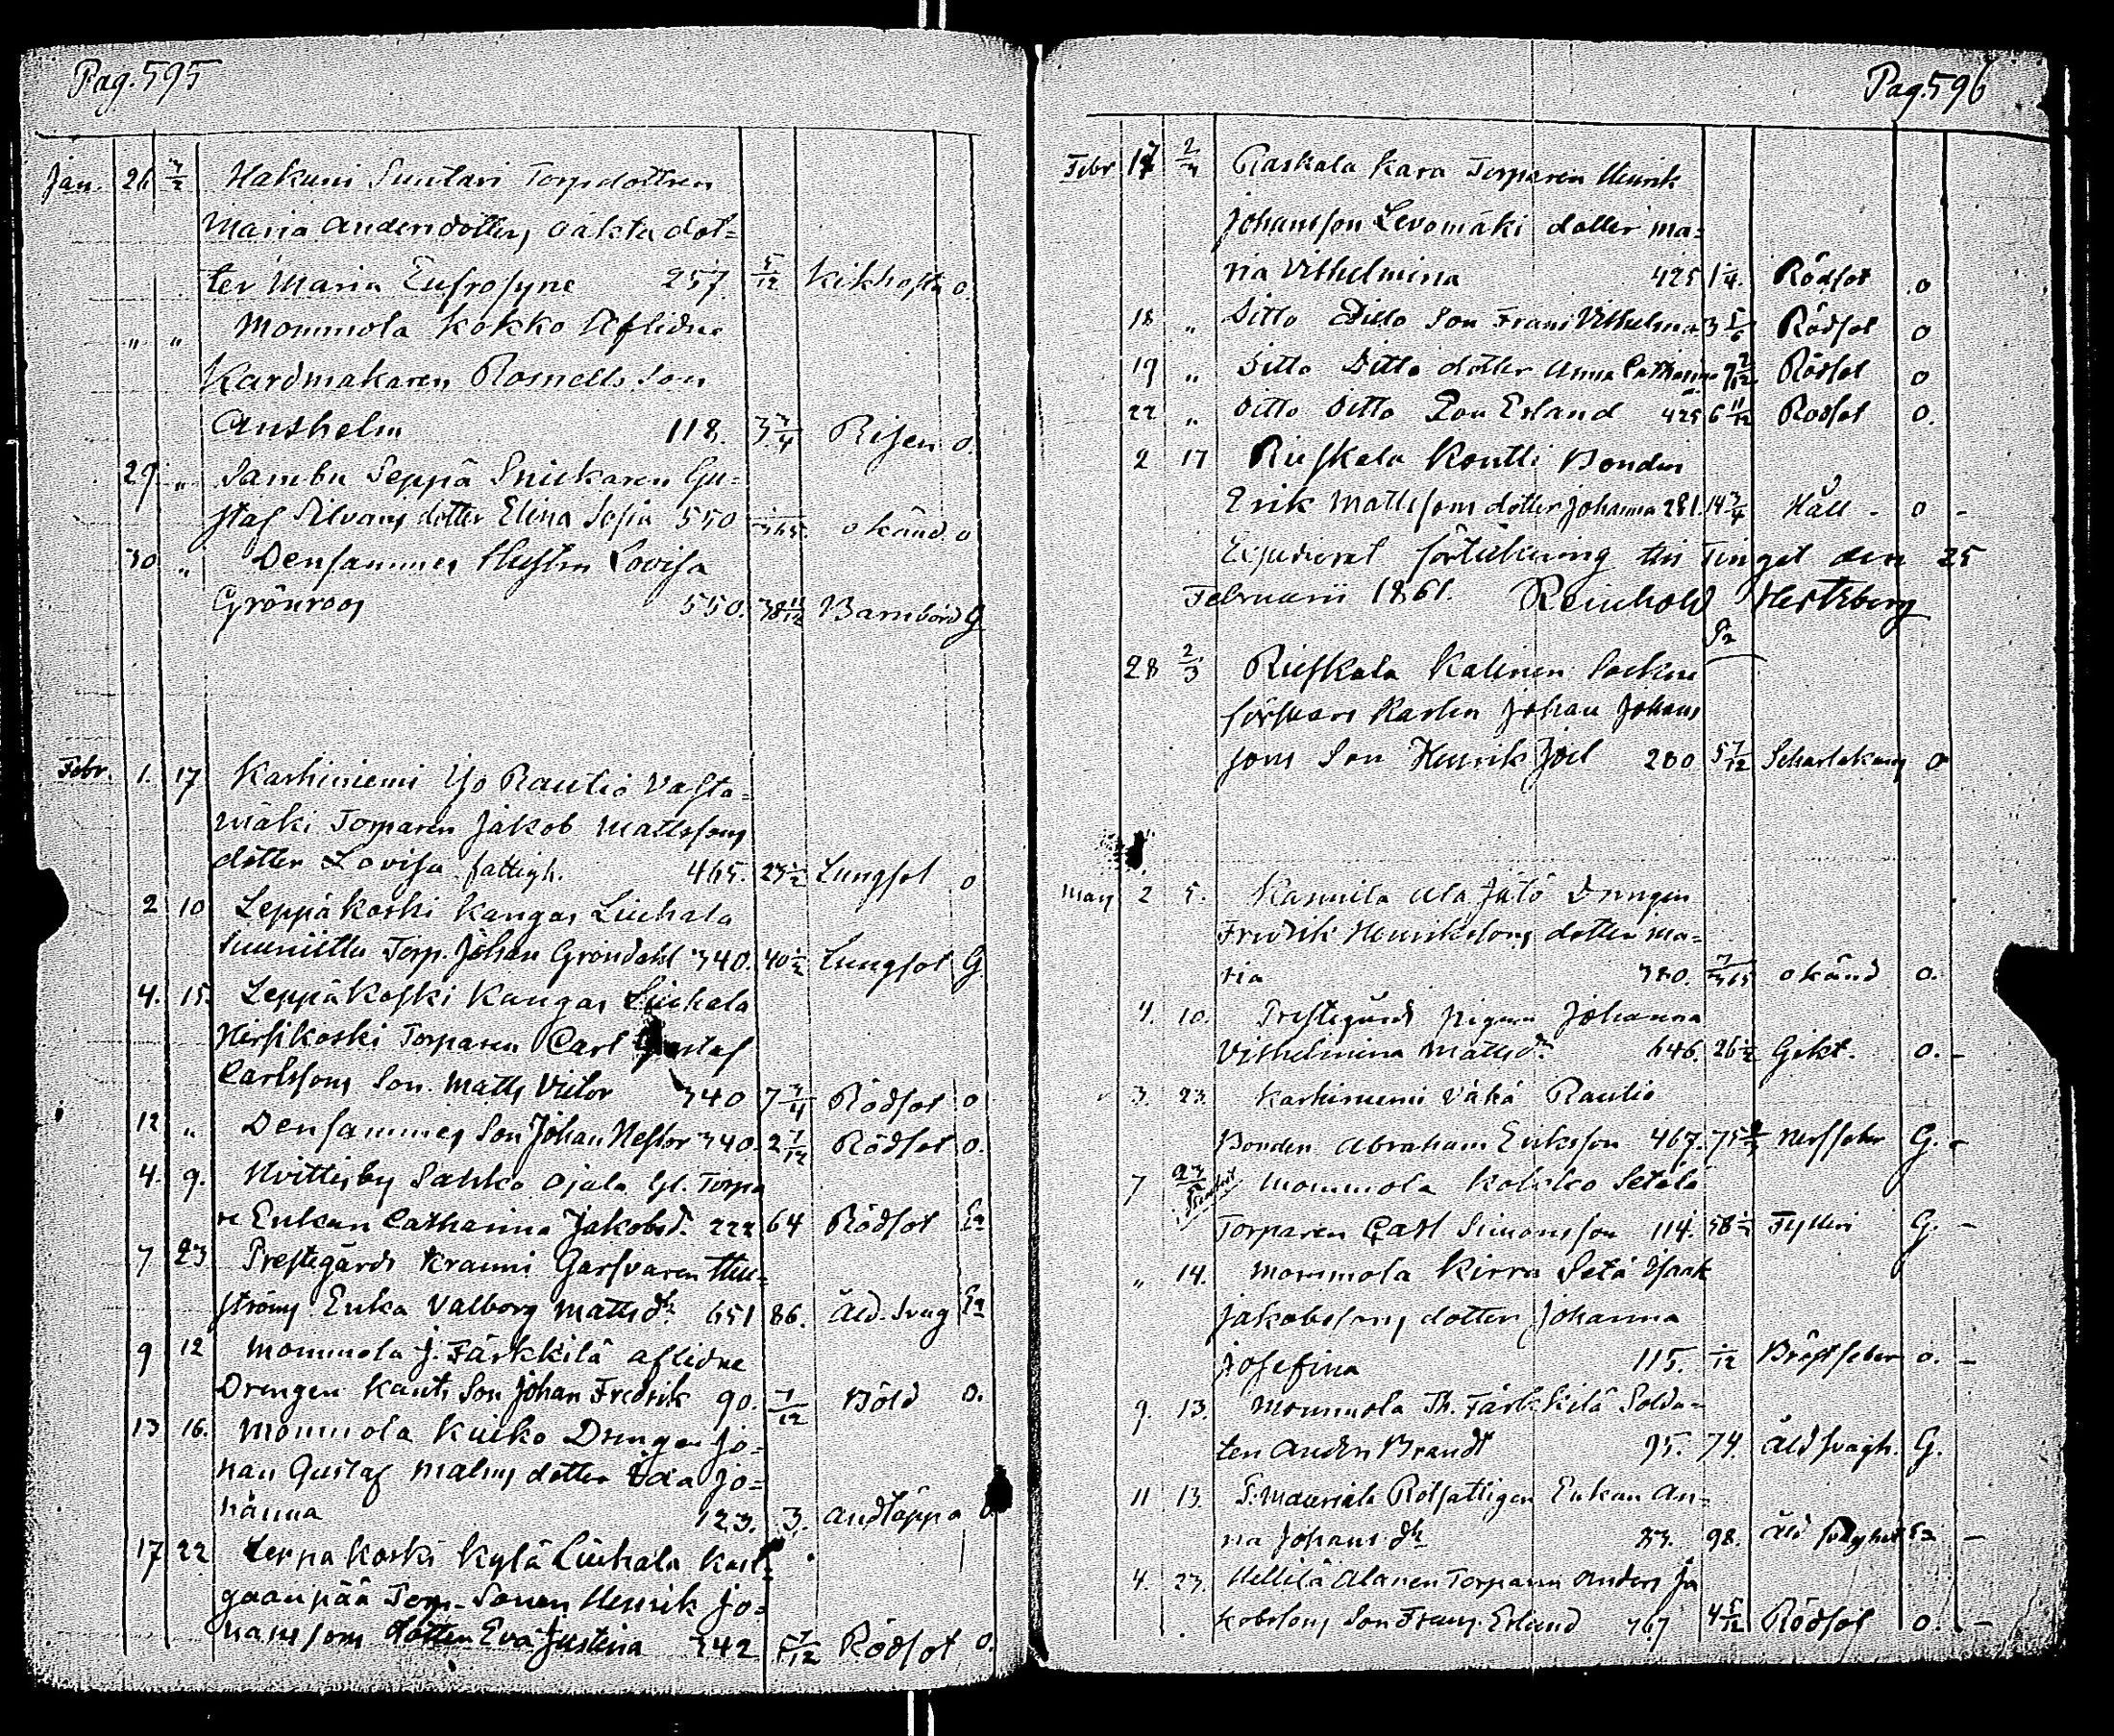 Pag. 595
Jan. 26 3/2 Hakuni Suutari Torpdottren
Maria Andersdotters oäkta dot=
ter Maria Eufrosyne 257. 5/12 Kikhosta o.
" " Mommola Kokko Aflidne
Kardmakaren Rosnells Son
Anshelm 118. 3 3/4 Risen o.
29 " Sambu Seppä Snickaren Gu=
staf Silvans dotter Elina Sofia 550 1/365. okänd. o
30 " Densammes Hustru Lovisa
Grönroos 550. 38 11/12 Barnbörd G
Febr. 1. 17 Karhiniemi Yjo Rautio Vasta=
mäki Torparen Jakob Mattssons
dotter Lovisa fattigh. 465. 23 1/2 Lungsot o
2 10 Leppäkoski Kangas Liuhala
Torp. Johan Gröndahl 340. 40 1/2 Lungsot G.
4. 15. Leppäkoski Kangas Liuhala
Hirsikoski Torparen Carl Gustaf
Carlssons Son Matts Victor 340 7 3/4 Rödsot o
12 " Densammes Son Johan Nestor 340. 2 1/12 Rödsot o.
4. 9. Hvittisby Sahko Ojala Gl. Torpa
re Enkan Catharina Jakobsd. 222 64 Rödsot En
7 23 Prestegårds Kraumi Garfvaren
ströms Enka Valborg Mattsdr 651 86. Åld. svag En
9 12 Mommola J. Färkkilä aflidne
Drengen Kants Son Johan Fredrik 90. 1/12 Böld o.
13 16. Mommola Kuiko Drengen Jo=
han Gustaf Malms dotter Ida Jo=
hanna 123. 3. Andtäppa o
17 22 Leppäkoski Kylä Liuhala
gaanpää Torp. Sonen Henrik Jo=
hanssons dotter Eva Justina 342 5 7/12 Rödsot o.
Pag. 596
Febr 17 2/3 Raskala Kara Torparen Henrik
Johansson Levomäki dotter Ma=
ria Vilhelmina 425 1 1/4. Rödsot o
18 " Ditto Ditto Son Frans Vilhelm 3 5/6 Rödsot o
19 " Ditto Ditto dotter Anna Catharina 9 2/12 Rödsot o
22 " Ditto Ditto Son Erland 425 6 11/12 Rödsot o.
2 17 Riefkala Kontti Bonden
Erik Mattssons dotter Johanna 281. 14 3/4 Håll - o -
Expedierat förteckning till Tinget den 25
Februarii 1861. Reinhold Hertzberg
28 2/3 Riefkala Kalinen Socken
Karlen Johan Johans
sons Son Henrik Joel 280 5 7/12 Scharlakans o
May 2 5. Kannila Ala Jätö Drengen
Fredrik Henrikssons dotter Ma=
ria 380. 7/365 okänd o.
4. 10. Prestegårds pigan Johanna
Vilhelmina Mattsdr 646. 26 1/2 Gikt. o. -
3. 23. Karhiniemi Vähä Rautio
Bonden Abraham Eriksson 467. 75 Nerffeber G. -
7 Mommola Kokko Setälä
Torparen Carl Simonsson 114. 58 1/2 G. -
" 14. Mommola Kirra Setä Isaak
Jakobssons dotter Johanna
Josefina 115. 1/12 Bröstfeber o. -
9. 13. Mommola Th. Färkkilä Solda=
ten Anders Brandt 95. 74. Åld svagh. G.
11 13. S. Mauriala Rotfattigen Enkan An=
na Johansdr 83. 98. Åld svaghet En -
4. 23. Hellilä Alanen Torparen Anders Ja
kobssons Son Frans Erland 767 4 5/12 Rödsot o. -